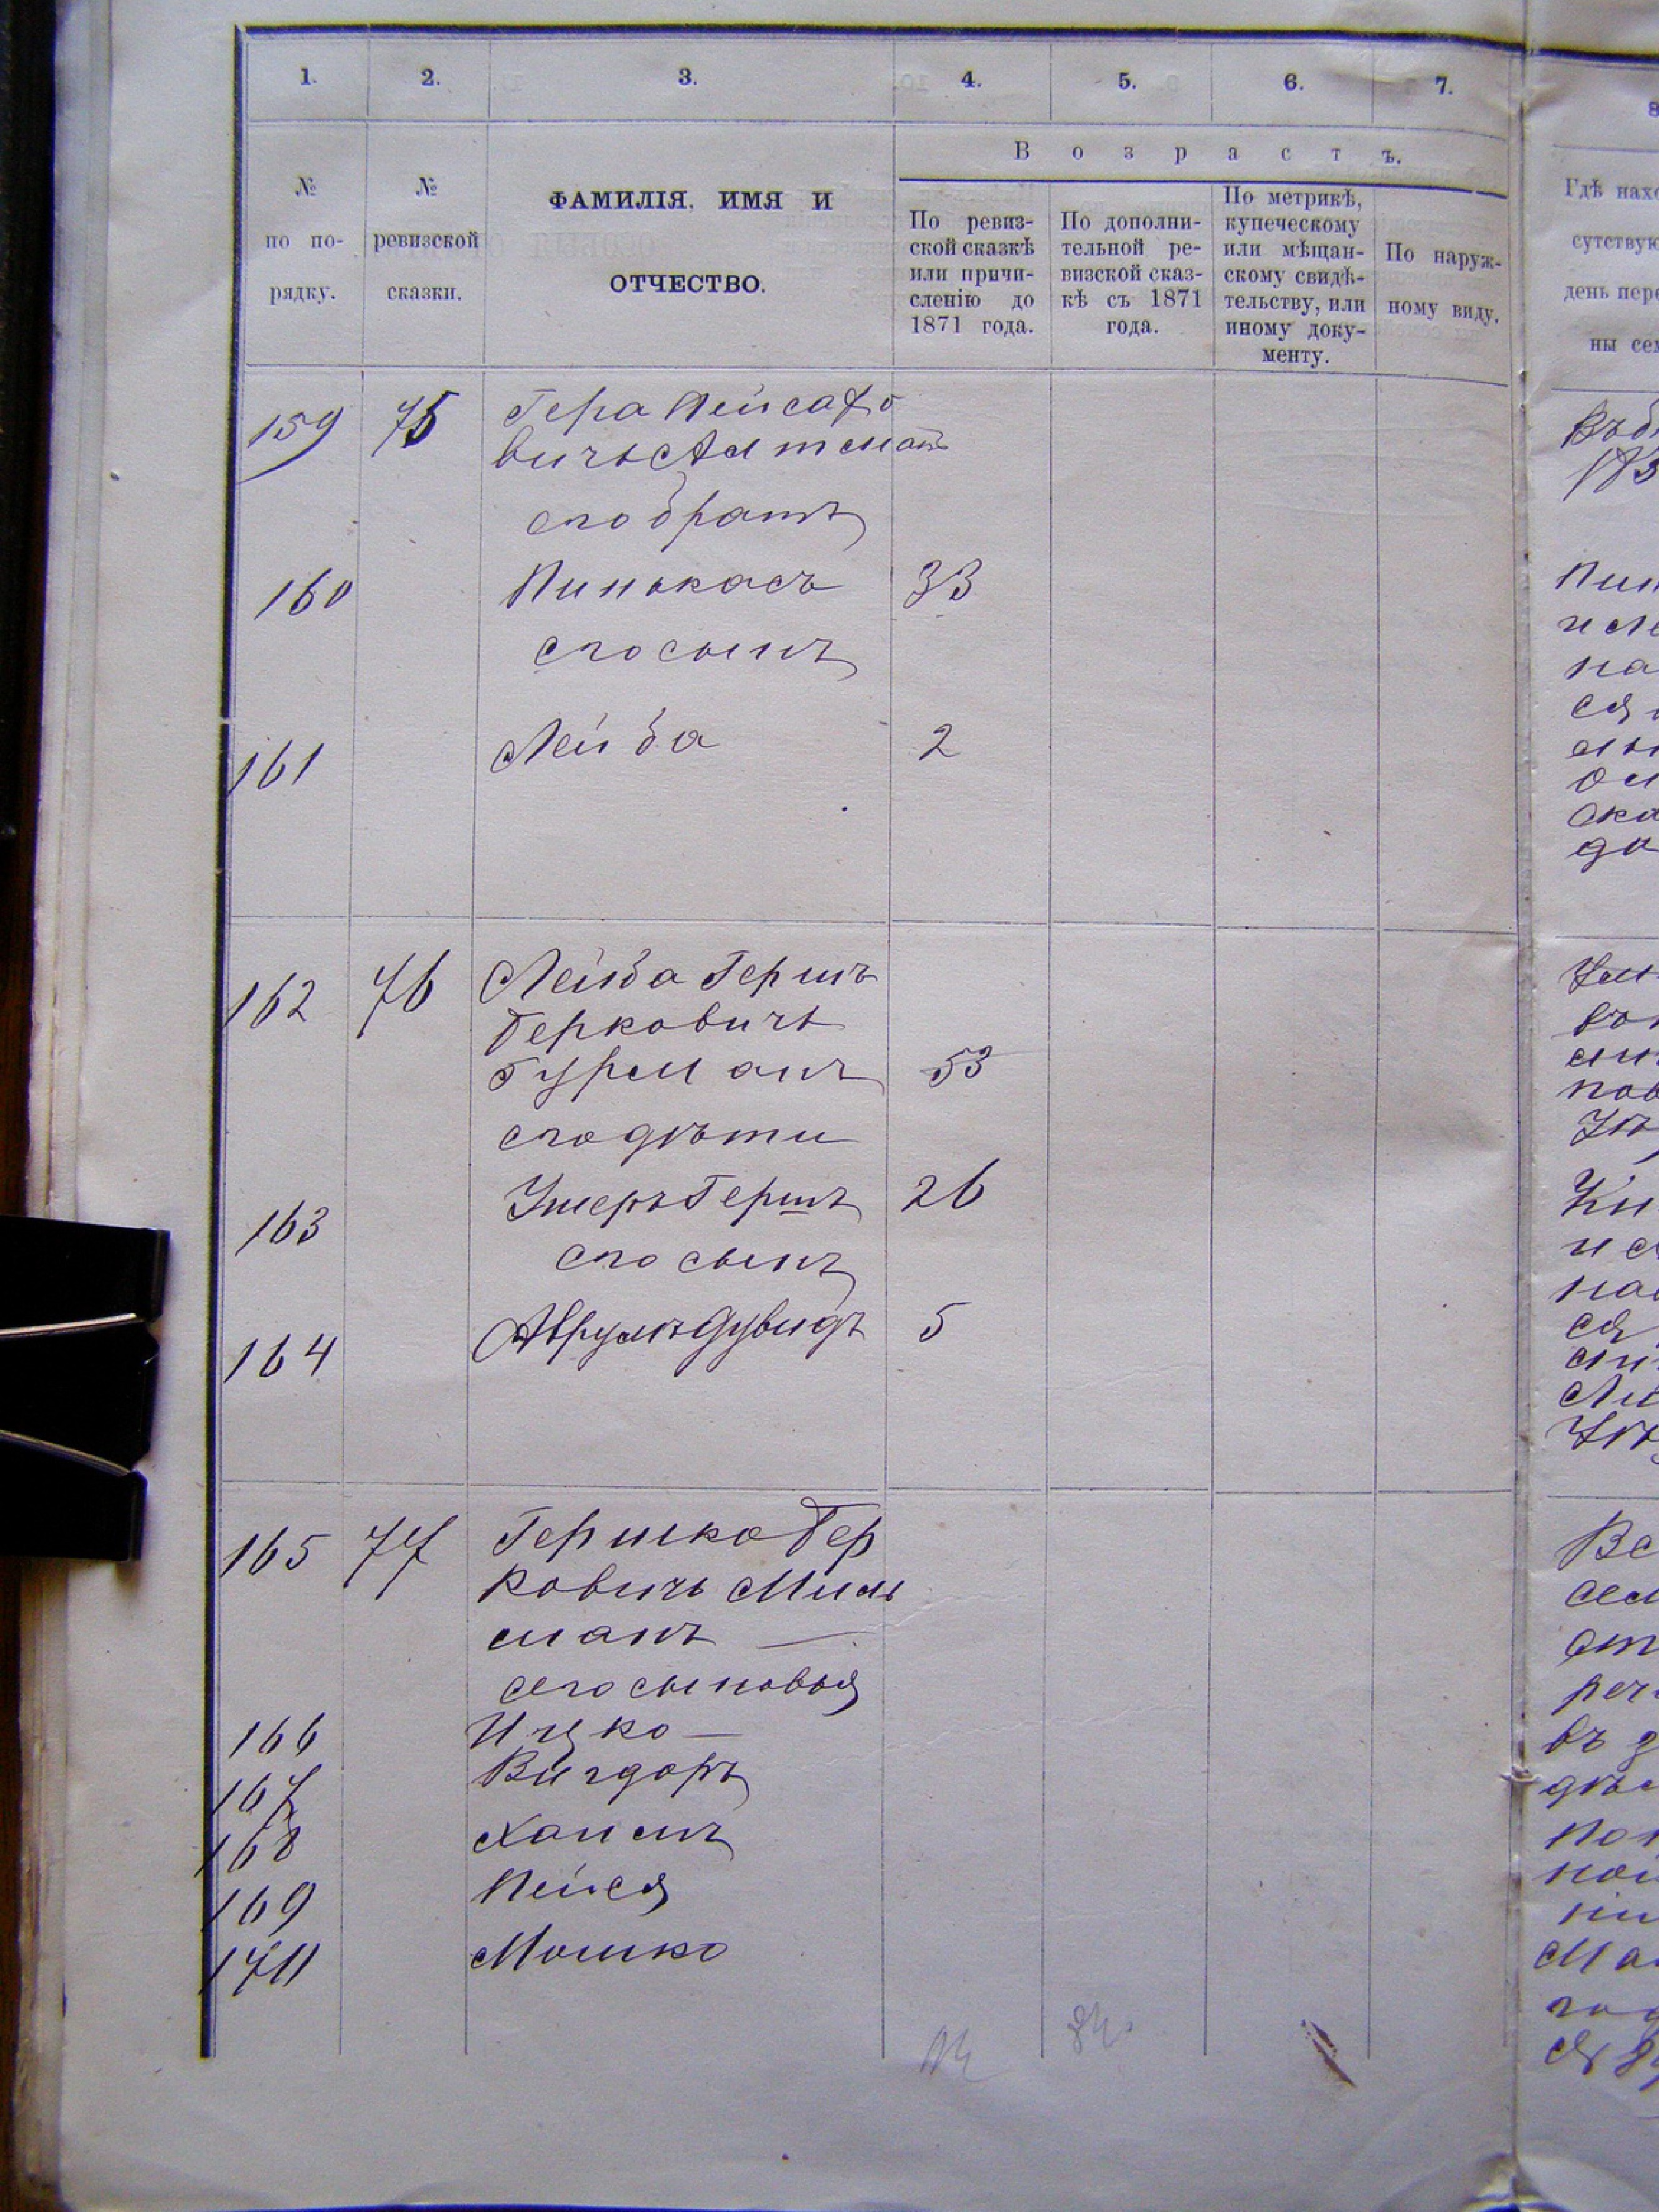 1. 2. 3. 4. 5. 6. 7.
№ по порядку.
№ ревизской сказки.
ФАМИЛІЯ, ИМЯ И ОТЧЕСТВО.
Возрастъ.
По ревиз-
ской сказкѣ
или причи-
сленію до
1871 года.
По дополни-
тельной ре-
визской сказ-
кѣ съ 1871
года.
По метрикѣ,
купеческому
или мѣщан-
скому свидѣ-
тельству, или
иному доку-
менту.
По наруж-
ному виду.
159 75 Гера Пейсахо
вичъ Альтманъ
его братъ
160 Пинькасъ 33
его сынъ
161 Лейба 2
162 76 Лейба Гершъ
Берковичъ
Гурманъ 53
его дѣти
163 Умеръ Гершъ 26
его сынъ
164 Аврумъ Дувидъ 5
165 77 Гершко Бер
ковичъ Миль
манъ
его сыновья
166 Ицко
167 Вигдоръ
168 Хаимъ
169 Пейся
170 Мошко